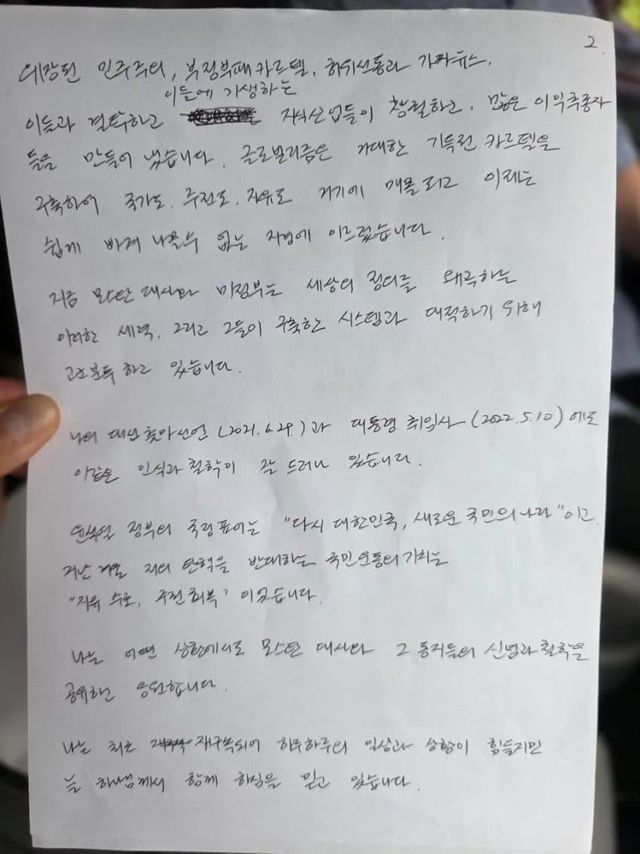 2.
위장된 민주주의, 부정부패카르텔, 허위선동과 가짜뉴스.
이들에 기생하는
이들과 결탁하고 지식산업들이 창궐하고, 많은 이익추종자
들을 만들어 냈습니다. 글로벌리즘은 거대한 기득권 카르텔을
구축하여 국가도, 주권도, 자유도 거기에 매몰되고 이제는
쉽게 빠져 나올수 없는 지경에 이르렀습니다.
지금 모스탄 대사와 미정부는 세상의 정의를 왜곡하는
이러한 세력, 그리고 그들이 구축한 시스템과 대적하기 위해
고군분투 하고 있습니다.
나의 대선출마선언 (2021.6.29.)과 대통령 취임사 (2022.5.10)에도
이같은 인식과 철학이 잘 드러나 있습니다.
윤석열 정부의 국정표어는 "다시 대한민국, 새로운 국민의나라"이고,
지난 겨울 저의 탄핵을 반대하는 국민운동의 기치는
"자유 수호, 주권 회복" 이었습니다.
나는 어떤 상황에서도 모스탄 대사와 그 동지들의 신념과 철학을
공유하고 응원합니다.
나는 최근 재구속되어 하루하루의 일상과 상황이 힘들지만
늘 하나님께서 함께 하심을 믿고 있습니다.